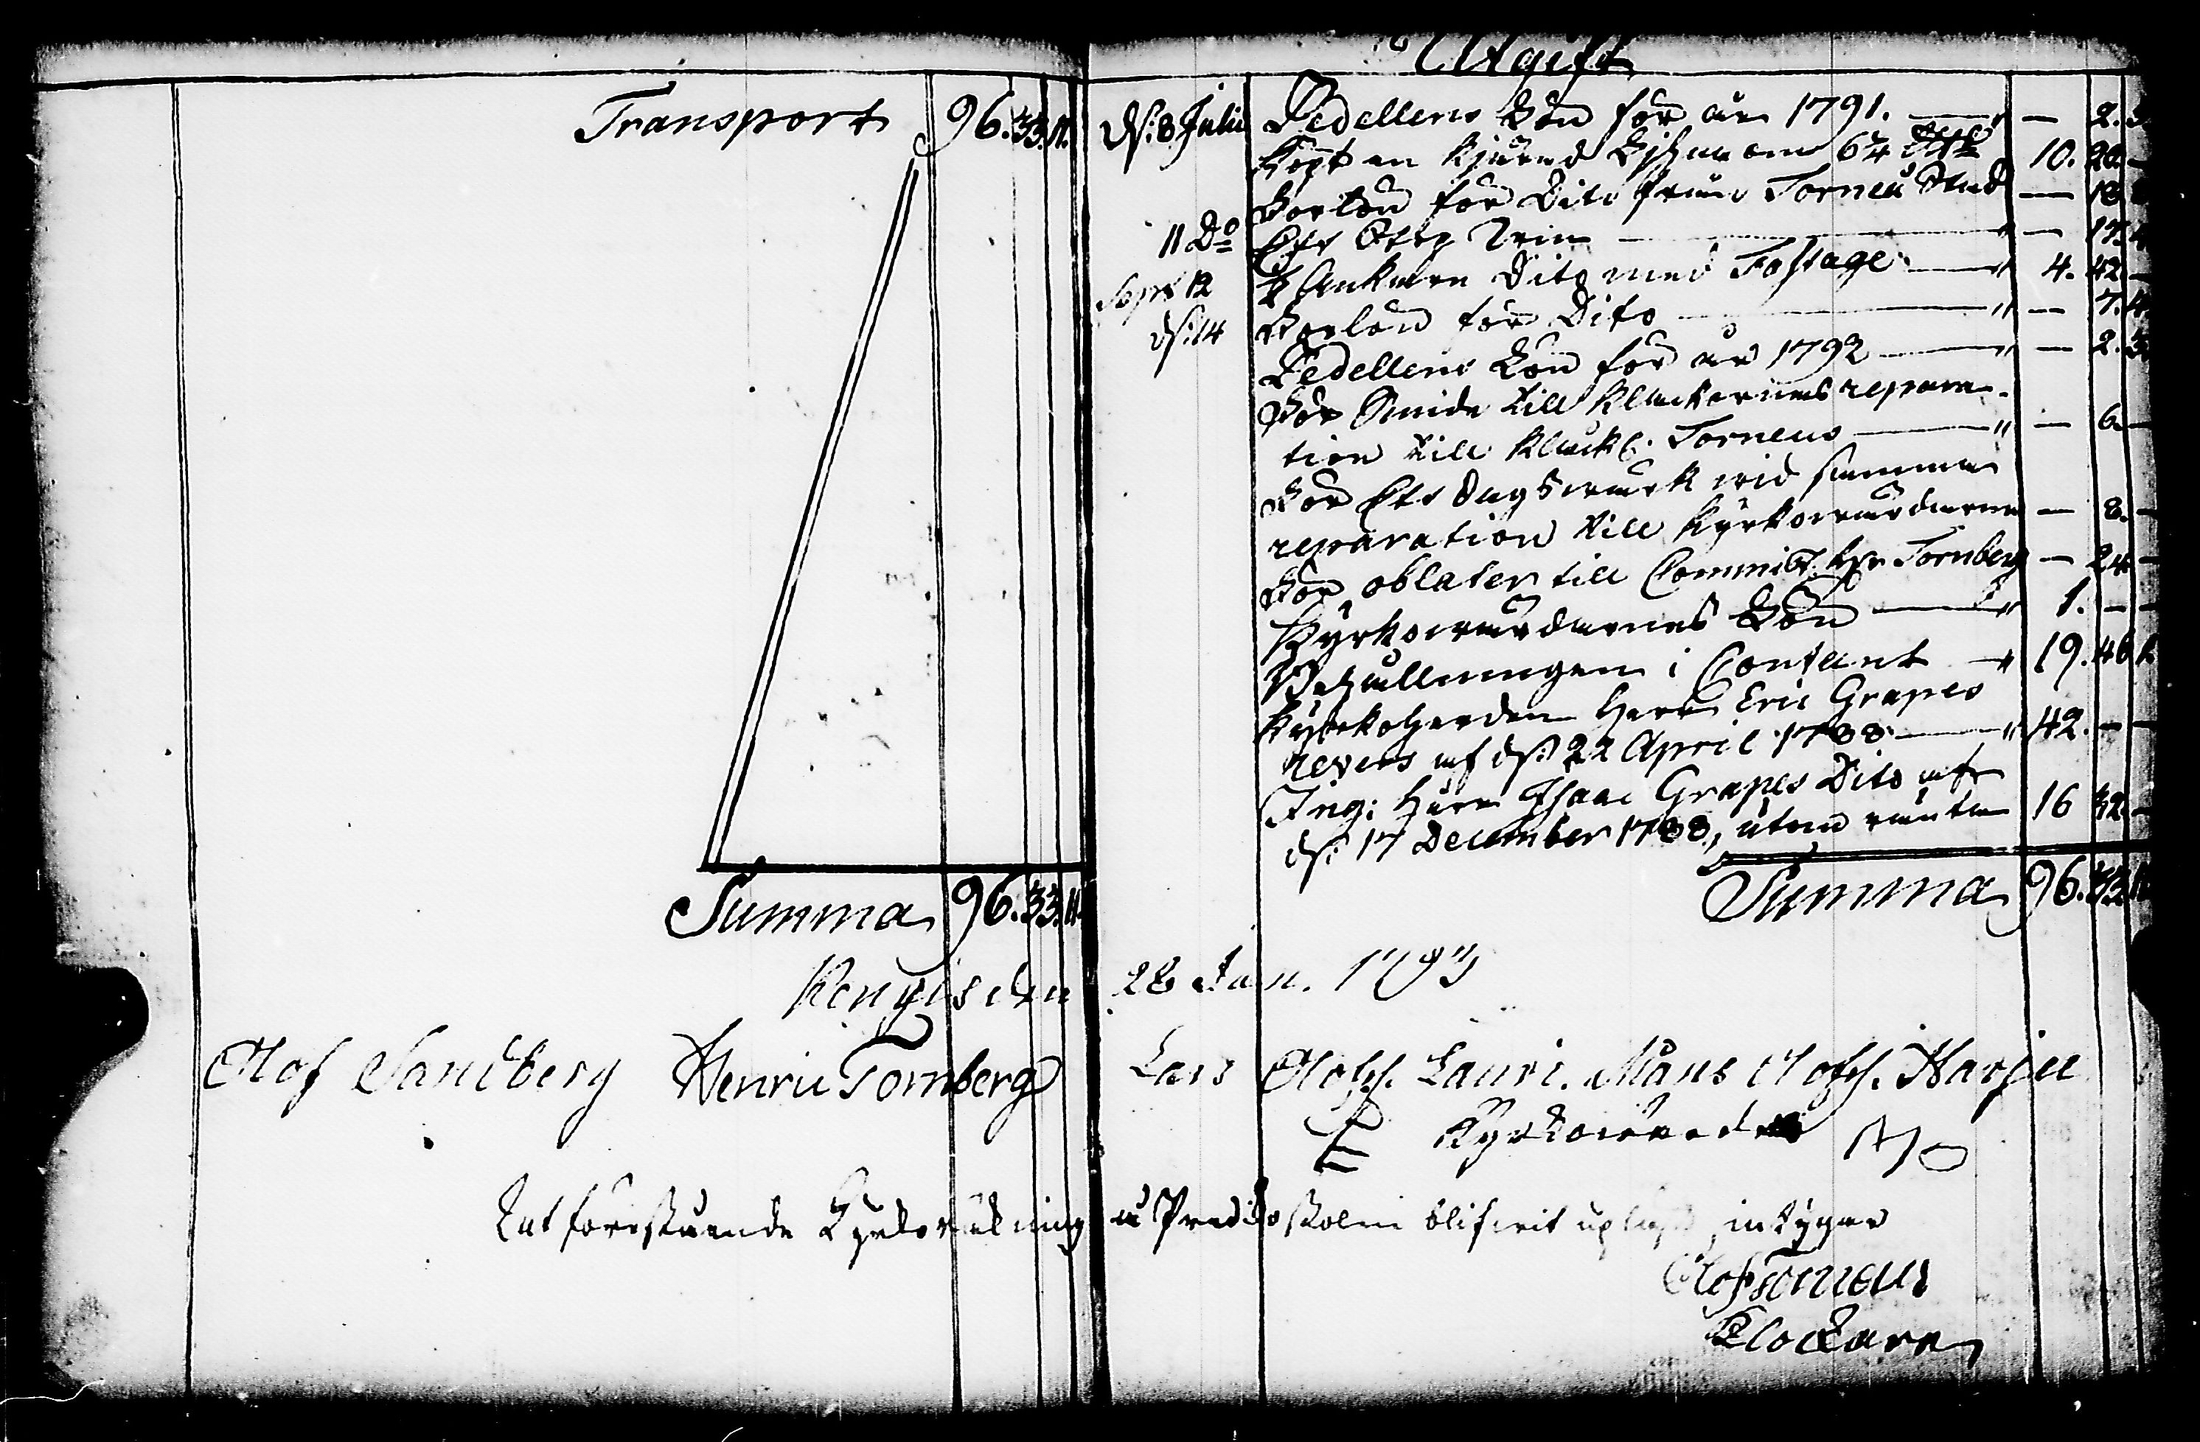 Transport 96. 33. 11.
Summa 96. 33. 11.
Utgift
d: 8 Julii Pedellens Lön för år 1791. — " — 2.
Köpt en 64 10. 20. —
Forlön för Dito från Torneå Stad — 18
11 Do Ett Stop Win — " — 17.
Sept 12 Ankare Dito med Fastage — " 4. 42. —
d: 14 Forlön för Dito — " — 7. 4
Pedellens Lön för år 1792 — " — 2.
För Smide till Klockornes repara-
tion till Klock: Torneus — " — 6. —
För Ett Dagswerk wid samma
reparation till Kyrkowärdarne — 8. —
För oblater till Comminist: Hr Tornberg — 24. —
Kyrkowärdarnes Lön — " 1. — —
Behållningen i Contant — " 19. 46
Kyrkoherden Herr Eric Grapes
revers af d: 22 April 1788 — " 42. — —
Ing: Herr Isaac Grapes Dito af
d: 17 December 1788, utom ränta 16 32. —
Summa 96. 33. 11
Kengis den 28 Jan. 1793
Olof Sandberg Henric Tornberg Lars Olofs. Lauri. Måns Olofs. Harju
Kyrkowärdar
Att förestående Kyrkoräkning å Predikostolen blifwit uplast, intygar
Olof Torneus
Klockare